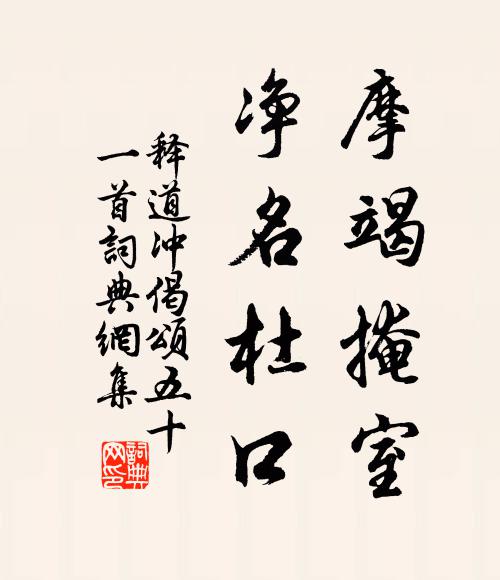 摩竭掩室
净名杜口
释道冲偈颂五十
一首詞典網集
詞典网印